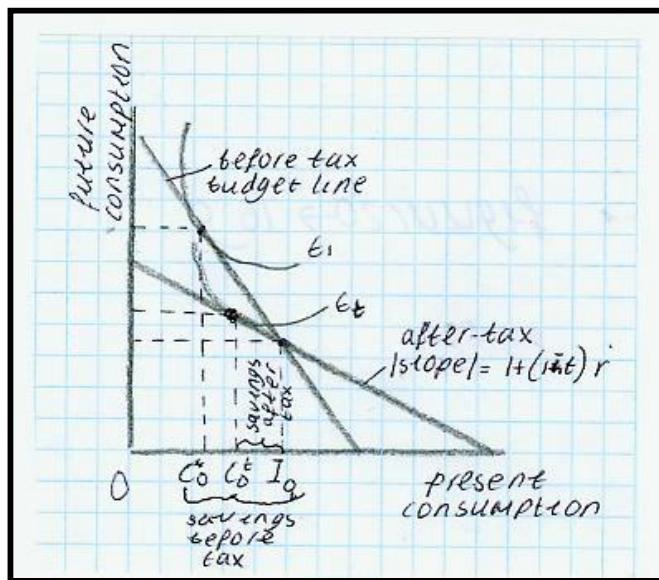 future
consumption
before tax
budget line
E1
Et
after-tax
|slope| = 1+(1-t) r
savings
after
tax
0
C*0 Ct0 I0
present
consumption
savings
before
tax